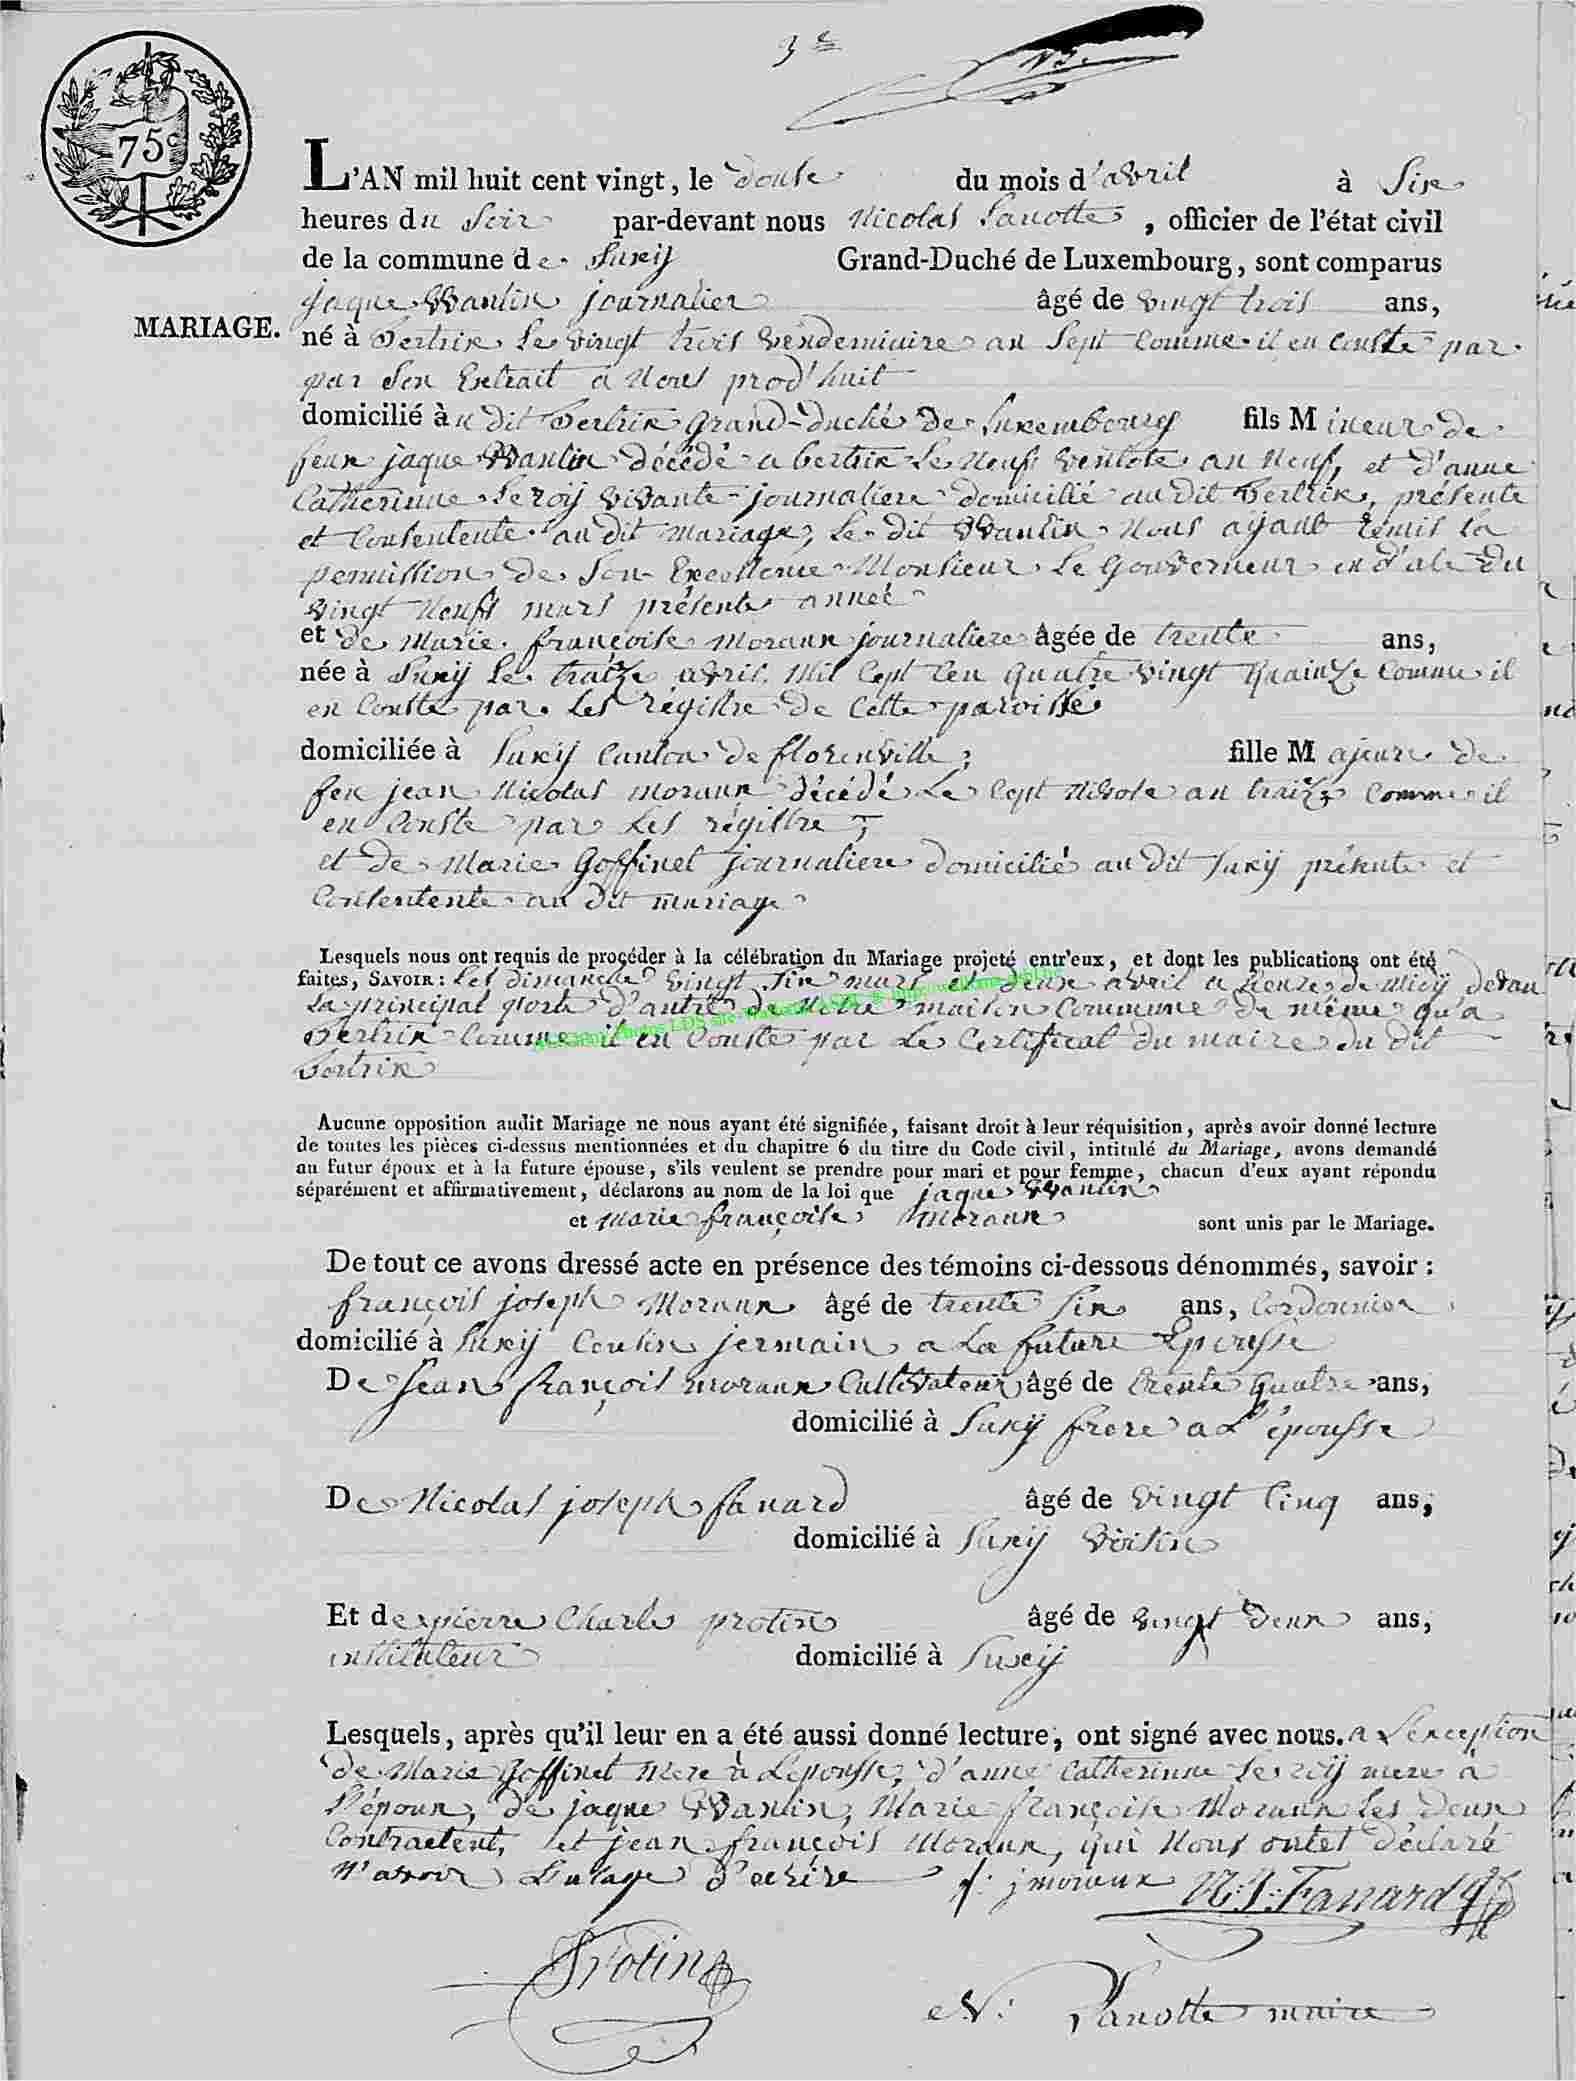 3e
N3.
75c
L'AN mil huit cent vingt, le douse du mois d'avril à Six
heures du Soir par-devant nous Nicolas Lanotte, officier de l'état civil
de la commune de Suxij Grand-Duché de Luxembourg, sont comparus
MARIAGE.
jaque Wanlin journalier âgé de vingt trois ans,
né à Bertrix Le vingt trois vendemiaire an Sept Comme il en Conste par
par Son Extrait a Nous prod'huit
domicilié àu dit Bertrix Grand-duché de Luxembourg fils Mineur de
feux jaque Wanlin décédé a bertrix Le Neuf ventose an Neuf, et d'anne
Catherinne Leroij vivante journaliere domicilié au dit Bertrix, présente
et Consentente au dit mariage, Le dit Wanlin Nous ayant remis la
permission de Son Excellence Monsieur Le Gouverneur en d'ate du
vingt Neuf mars présente année
et de Marie françoise moraux journaliere âgée de trente ans,
née à Suxij Le traize avril mil Sept Cen quatre vingt Comme il
en Conste par Les régistre de Cette paroisse
domiciliée à Suxij Canton de florenville; fille Majeure de
feu jean Nicolas moraux décédé Le Sept Nivose an traize Comme il
en Conste par Les régistre;
et de Marie Goffinet journaliere domicilié au dit Suxij présente et
Consentente au dit mariage
Lesquels nous ont requis de procéder à la célébration du Mariage projeté entr'eux, et dont les publications ont été
faites, SAVOIR: Les dimanche vingt Six mars et deux avril a heure de Midij devan
La principal porte d'antré de Notre maison Commune de même qu'a
Bertrix Comme il en Conste par Le Certificat du maire du dit
Bertrix
Aucune opposition audit Mariage ne nous ayant été signifiée, faisant droit à leur réquisition, après avoir donné lecture
de toutes les pièces ci-dessus mentionnées et du chapitre 6 du titre du Code civil, intitulé du Mariage, avons demandé
au futur époux et à la future épouse, s'ils veulent se prendre pour mari et pour femme, chacun d'eux ayant répondu
séparément et affirmativement, déclarons au nom de la loi que jaque Wanlin
et Marie françoise Moraux sont unis par le Mariage.
De tout ce avons dressé acte en présence des témoins ci-dessous dénommés, savoir:
françois joseph Moraux âgé de trente Six ans, Cordonnier
domicilié à Suxij Cousin jermain a La future Epousse
De Jean françois moraux Cultivateur, âgé de trente quatre ans,
domicilié à Suxij frere a L'épousse
De Nicolas joseph fanard âgé de vingt Cinq ans,
domicilié à Suxij voisin
Et de pierre Charle protin âgé de vingt deux ans,
instituteur domicilié à Suxij
Lesquels, après qu'il leur en a été aussi donné lecture, ont signé avec nous. a L'exception
de Marie Goffinet Mere à L'epousse, d'anne Catherinne Le roij mere à
L'époux, de jaque Wanlin, Marie françoise Moraux Les deux
Contractent, et jean françois Moraux, qui Nous ontet déclaré
N'avoir L'usage d'ecrire f: j moraux N:J: Fanard
Protin
N: Lanotte maire